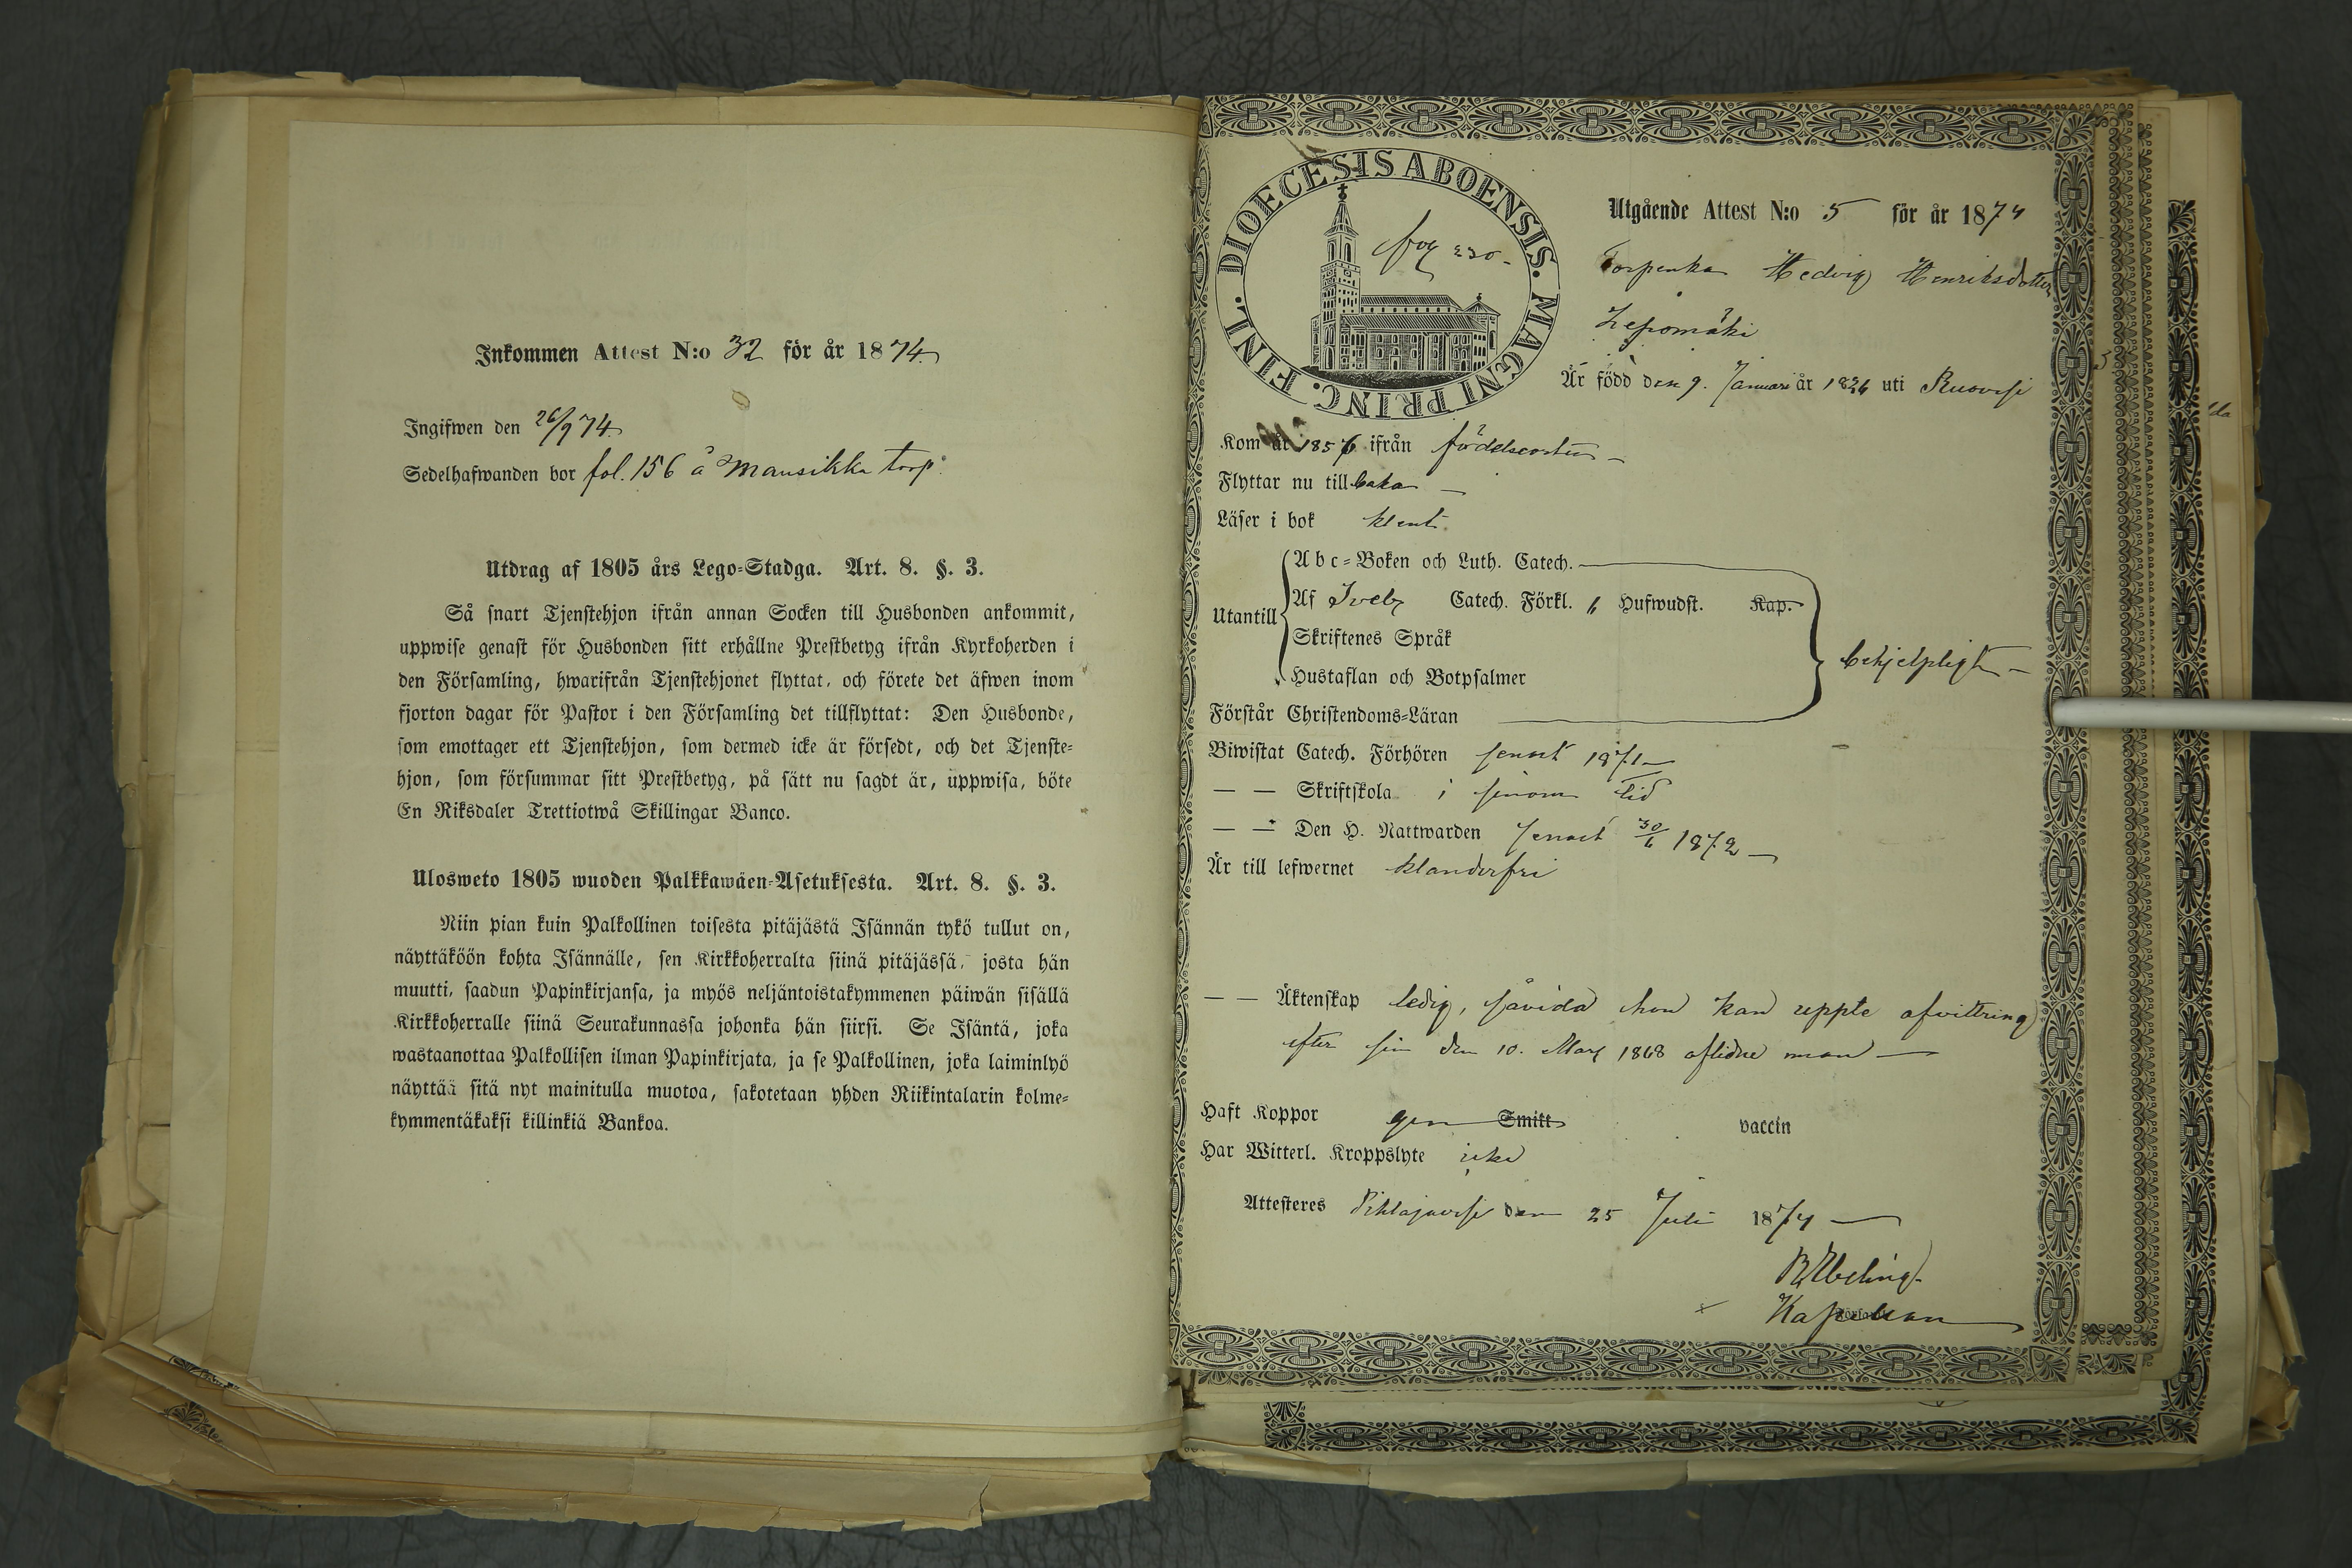 Inkommen Attest N:o 32 för år 1874
Ingifwen den 26/9 74
Sedelhafwanden bor fol. 156 å Mansikka torp.
Utdrag af 1805 års Lego-Stadga. Art. 8. §. 3.
Så snart Tjenstehjon ifrån annan Socken till Husbonden ankommit,
uppwise genast för Husbonden sitt erhållne Prestbetyg ifrån Kyrkoherden i
den Församling, hwarifrån Tjenstehjonet flyttat, och förete det äfwen inom
fjorton dagar för Pastor i den Församling det tillflyttat: Den Husbonde,
som emottager ett Tjenstehjon, som dermed icke är försedt, och det Tjenste-
hjon, som försummar sitt Prestbetyg, på sätt nu sagdt är, uppwisa, böte
En Riksdaler Trettiotwå Skillingar Banco.
Ulosweto 1805 wuoden Palkkawäen-Asetuksesta. Art. 8. §. 3.
Niin pian kuin Palkollinen toisesta pitäjästä Isännän tykö tullut on,
näyttäköön kohta Isännälle, sen Kirkkoherralta siinä pitäjässä, josta hän
muutti, saadun Papinkirjansa, ja myös neljäntoistakymmenen päiwän sisällä
Kirkkoherralle siinä Seurakunnassa johonka hän siirsi. Se Isäntä, joka
wastaanottaa Palkollisen ilman Papinkirjata, ja se Palkollinen, joka laiminlyö
näyttää sitä nyt mainitulla muotoa, sakotetaan yhden Riikintalarin kolme-
kymmentäkaksi killinkiä Bankoa.
DIOECESIS ABOENSIS. MAGNI PRINC. FINL.
pag 230
Utgående Attest N:o 5 för år 1874
Torpenkan Hedvig Henriksdotter
Lepomäki
Är född den 9. Januari år 1826 uti Ruovesi
Kom år 1856 ifrån födelseorten
Flyttar nu tillbaka
Läser i bok klent
Utantill
Abc-Boken och Luth. Catech.
Af Sveb. Catech. Förkl. 6 Hufwudst. Kap.
Skriftenes Språk
Hustaflan och Botpsalmer
Förstår Christendoms-Läran
behjelpligt
Biwistat Catech. Förhören senast 1871
— — Skriftskola i sinom tid
— — Den H. Nattwarden senast 30/6 1872
Är till lefwernet klanderfri
— — Äktenskap ledig, såvida hon kan uppte afvittring
efter sin den 10. Mars 1868 aflidne man
Haft Koppor gen Smitt vaccin
Har Witterl. Kroppslyte icke
Attesteres Pihlajavesi den 25 Juli 1874
Kapellan